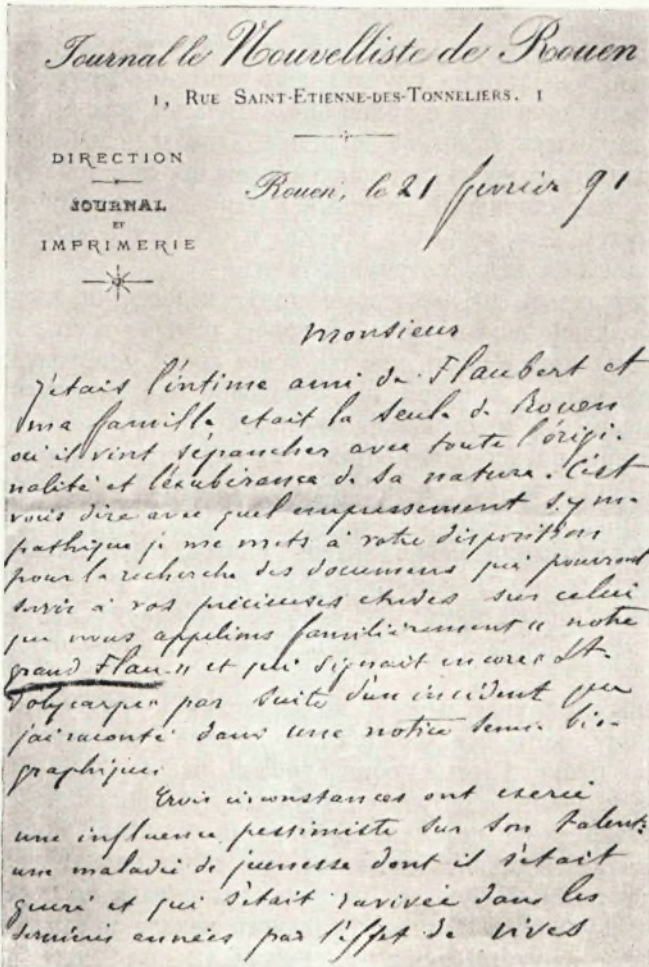 Journal le Nouvelliste de Rouen
1, RUE SAINT-ETIENNE-DES-TONNELIERS. 1
DIRECTION
JOURNAL
ET
IMPRIMERIE
Rouen, le 21 fevrier 91
Monsieur
J'étais l'intime ami de Flaubert et
ma famille etait la seule de Rouen
où il vint s'épancher avec toute l'origi-
nalité et l'exubérance de sa nature. C'est
vous dire avec quel empressement sym-
pathique je me mets à votre disposition
pour la recherche des documens qui pourront
servir à vos précieuses etudes sur celui
que nous appelions familièrement "notre
grand Flau" et qui signait encore "St
Polycarpe" par suite d'un incident que
j'ai raconté dans une notice semi-bio-
graphique.
Trois circonstances ont exercé
une influence pessimiste sur son talent:
une maladie de jeunesse dont il s'était
guéri et qui s'était ravivée dans les
dernières années par l'effet de vives